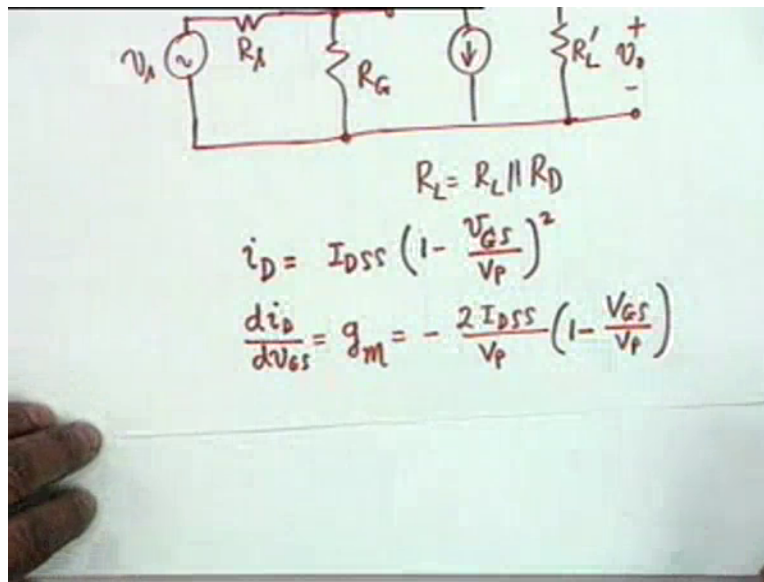 v_s ~ R_s R_G ↓ R_L' + v_o -
R_L = R_L || R_D
i_D = I_DSS (1 - v_GS/V_P)²
di_D/dv_GS = g_m = - 2 I_DSS/V_P (1 - V_GS/V_P)